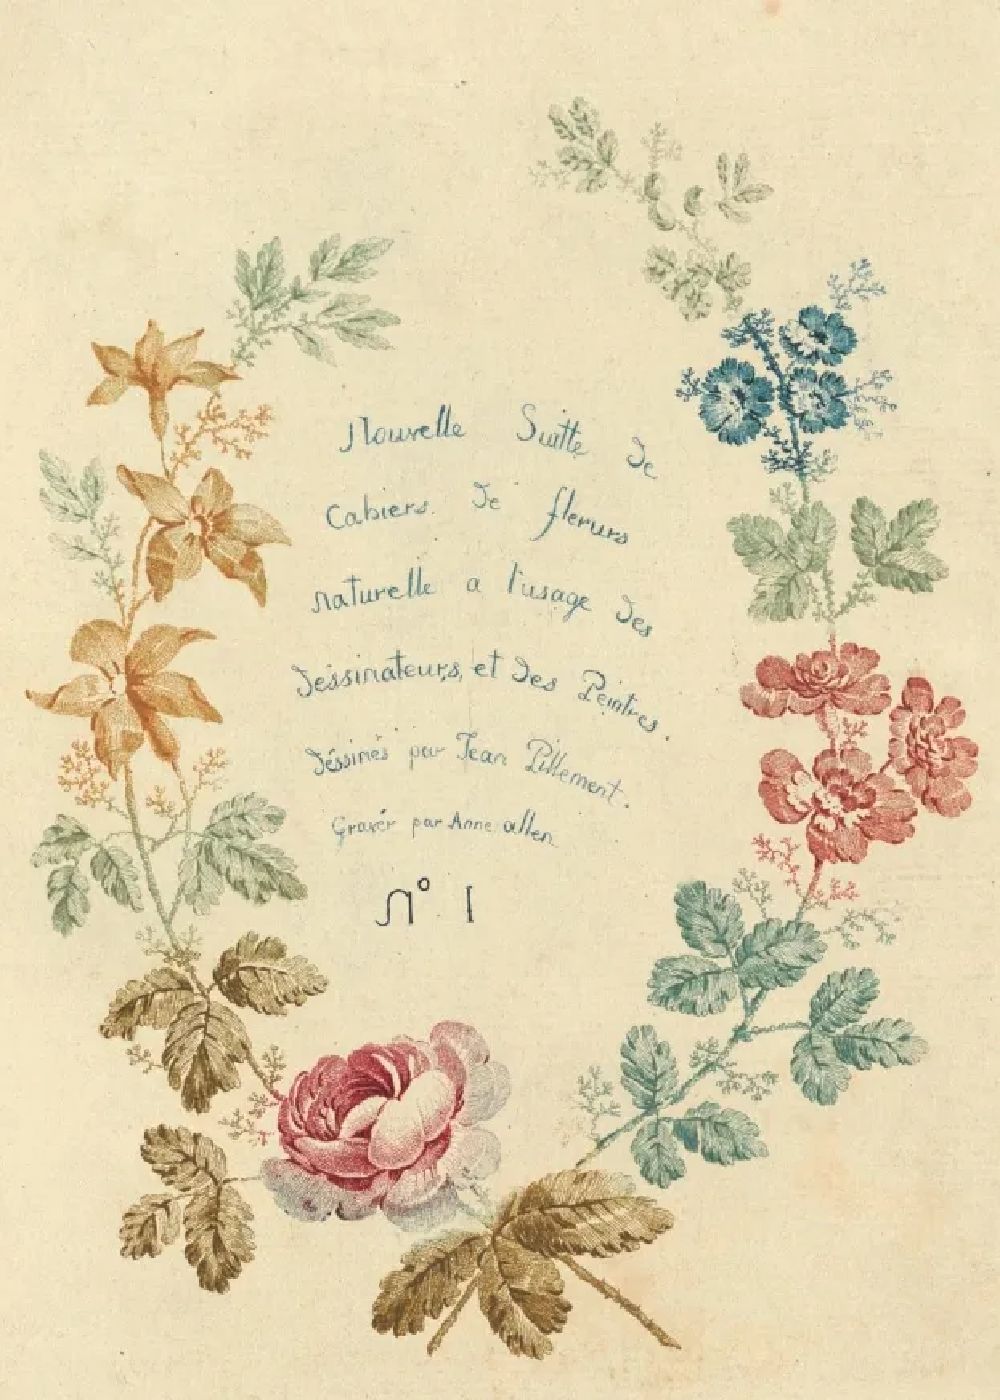 Nouvelle Suitte de
Cahiers de fleurs
naturelle a l'usage des
déssinateurs, et des Peintres.
déssinés par Jean Pillement.
Gravér par Anne allen
N° 1